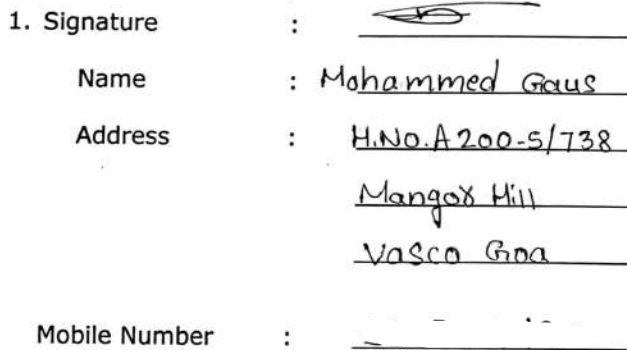 1. Signature :
Name : Mohammed Gaus
Address : H.No.A 200-5/738
Mangor Hill
Vasco Goa
Mobile Number :